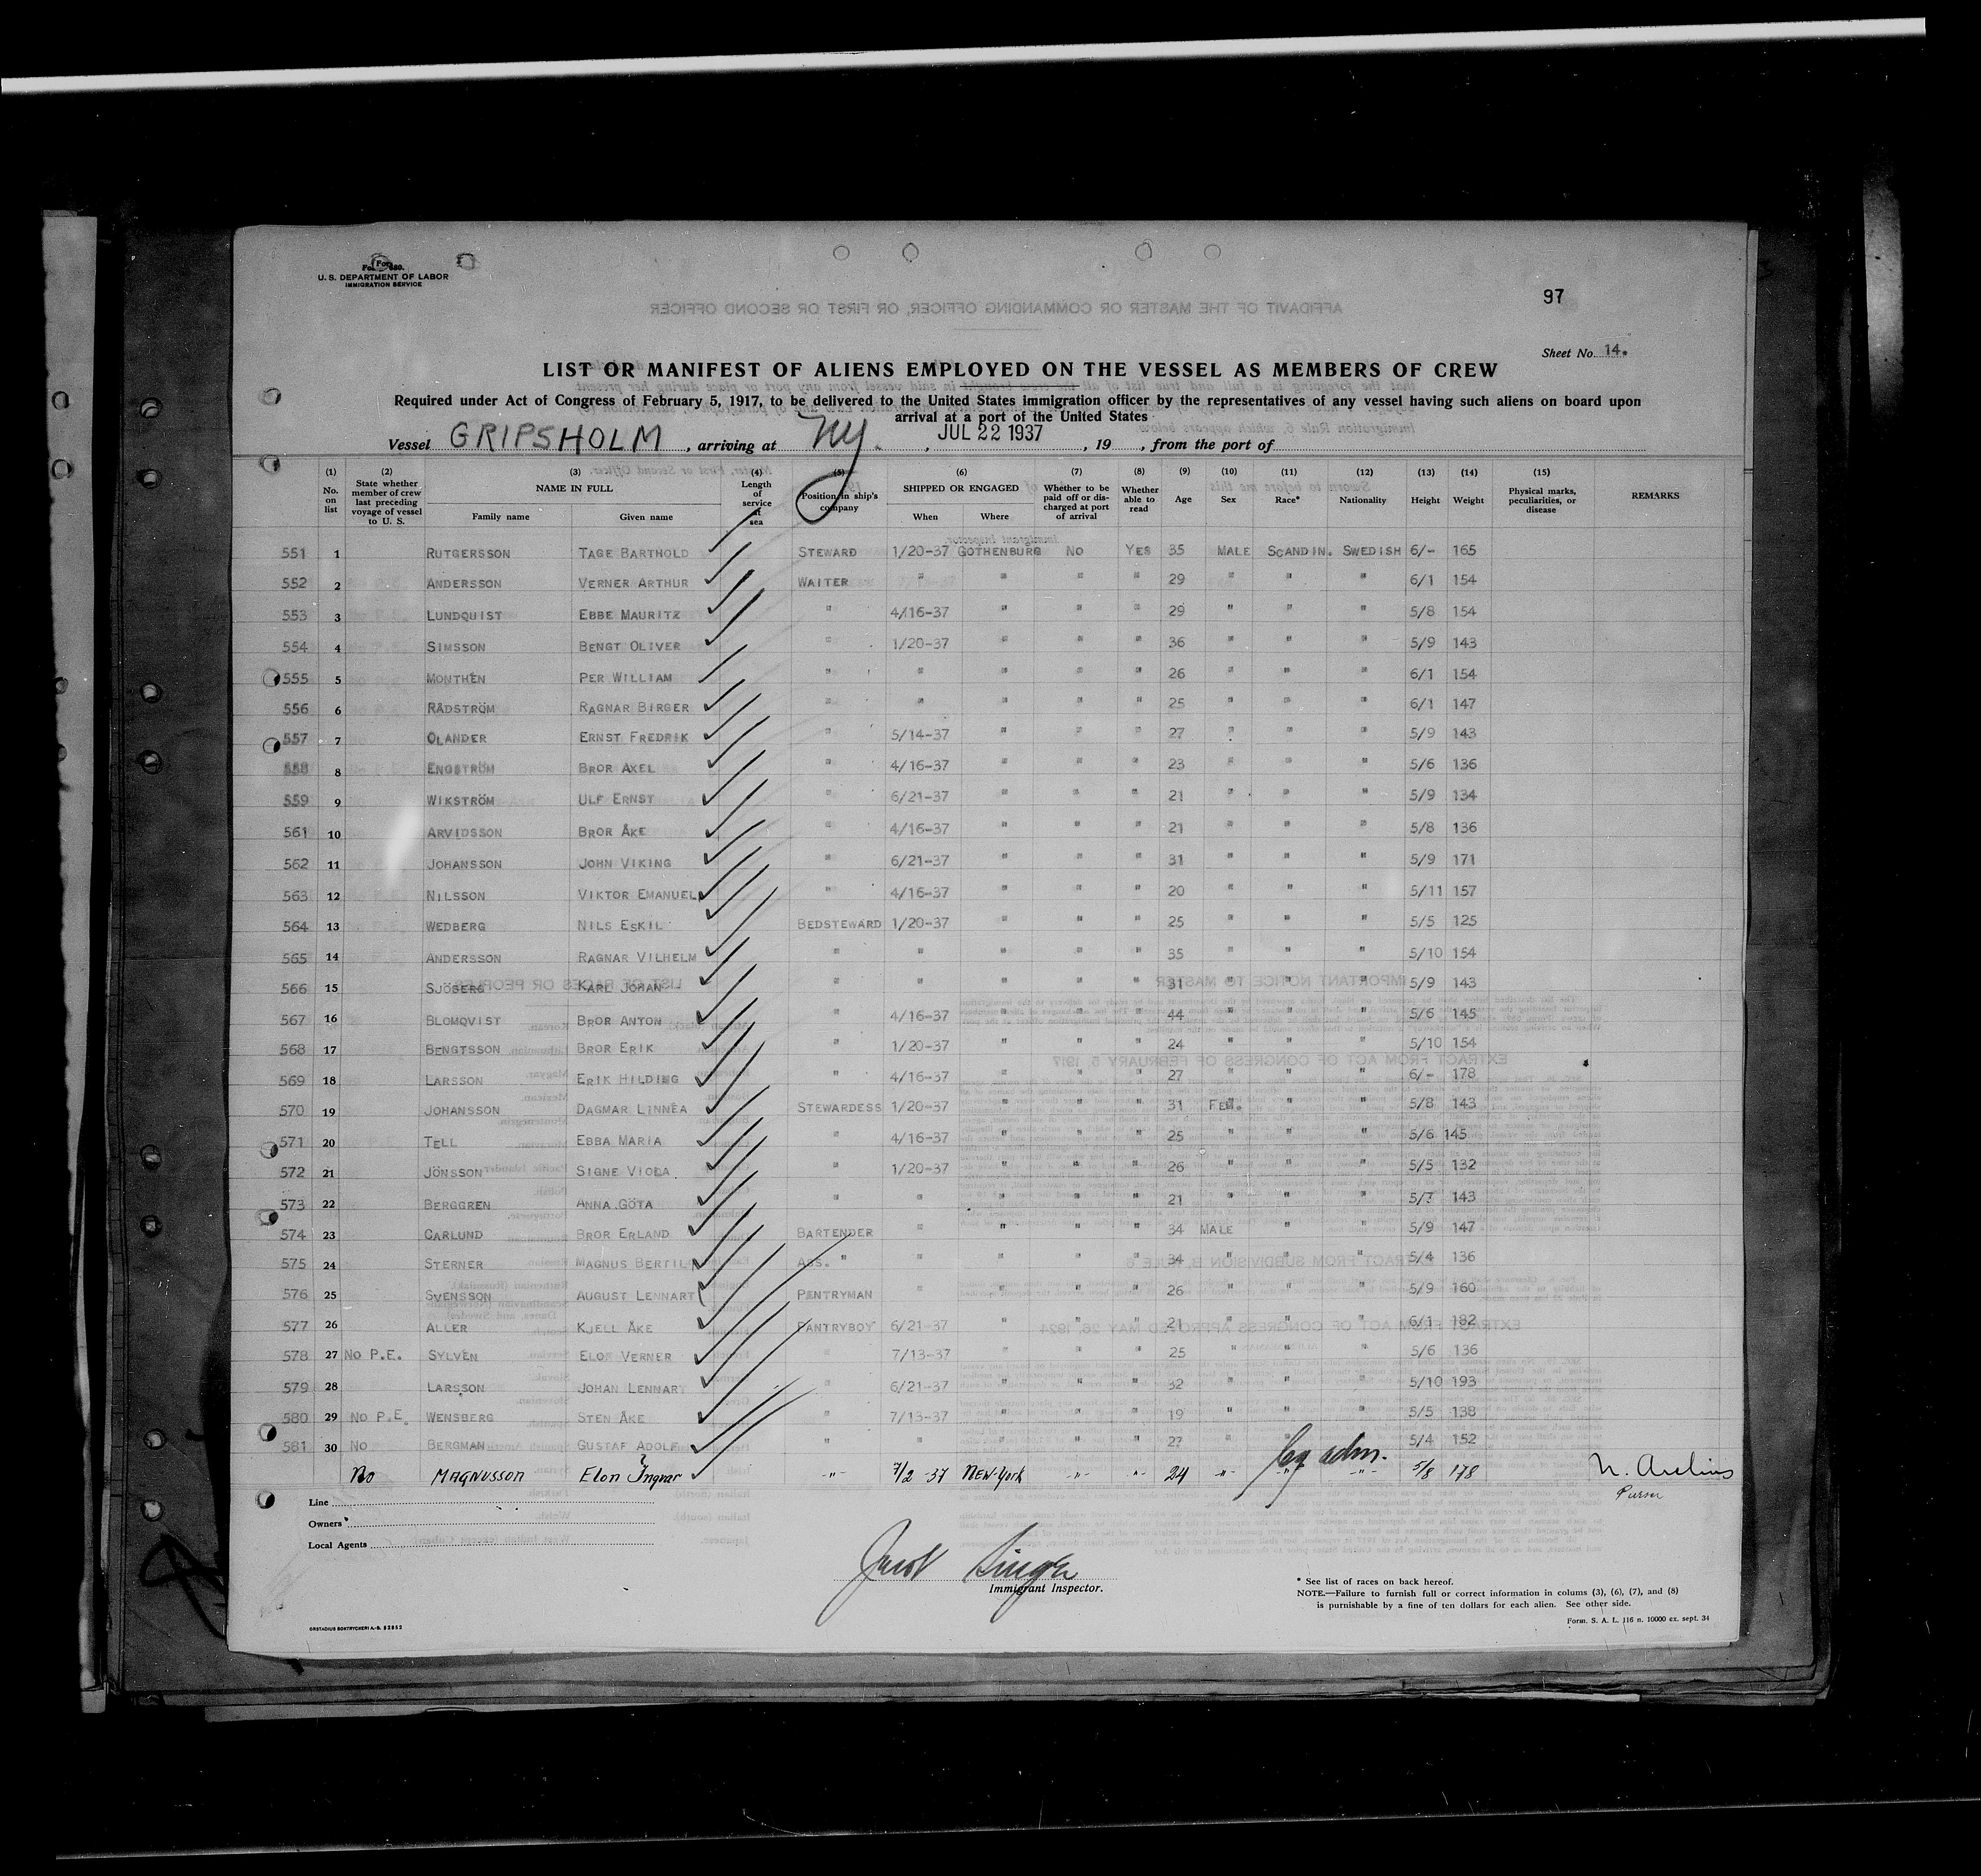 U. S. DEPARTMENT OF LABOR
IMMIGRATION SERVICE
97
Sheet No. 14.
LIST OR MANIFEST OF ALIENS EMPLOYED ON THE VESSEL AS MEMBERS OF CREW
Required under Act of Congress of February 5, 1917, to be delivered to the United States immigration officer by the representatives of any vessel having such aliens on board upon
arrival at a port of the United States
Vessel GRIPSHOLM, arriving at NY., JUL 22 1937, 19, from the port of
(1) No. on list (2) State whether member of crew last preceding voyage of vessel to U. S. (3) NAME IN FULL Family name Given name (4) Length of service at sea (5) Position in ship's company (6) SHIPPED OR ENGAGED When Where (7) Whether to be paid off or discharged at port of arrival (8) Whether able to read (9) Age (10) Sex (11) Race* (12) Nationality (13) Height (14) Weight (15) Physical marks, peculiarities, or disease REMARKS
551 1 RUTGERSSON TAGE BARTHOLD STEWARD 1/20-37 GOTHENBURG NO YES 35 MALE SCANDIN. SWEDISH 6/- 165
552 2 ANDERSSON VERNER ARTHUR WAITER " " " " 29 " " " 6/1 154
553 3 LUNDQUIST EBBE MAURITZ " 4/16-37 " " " 29 " " " 5/8 154
554 4 SIMSSON BENGT OLIVER " 1/20-37 " " " 36 " " " 5/9 143
555 5 MONTHÉN PER WILLIAM " " " " " 26 " " " 6/1 154
556 6 RÅDSTRÖM RAGNAR BIRGER " " " " " 25 " " " 6/1 147
557 7 OLANDER ERNST FREDRIK " 5/14-37 " " " 27 " " " 5/9 143
558 8 ENGSTRÖM BROR AXEL " 4/16-37 " " " 23 " " " 5/6 136
559 9 WIKSTRÖM ULF ERNST " 6/21-37 " " " 21 " " " 5/9 134
561 10 ARVIDSSON BROR ÅKE " 4/16-37 " " " 21 " " " 5/8 136
562 11 JOHANSSON JOHN VIKING " 6/21-37 " " " 31 " " " 5/9 171
563 12 NILSSON VIKTOR EMANUEL " 4/16-37 " " " 20 " " " 5/11 157
564 13 WEDBERG NILS ESKIL BEDSTEWARD 1/20-37 " " " 25 " " " 5/5 125
565 14 ANDERSSON RAGNAR VILHELM " " " " " 35 " " " 5/10 154
566 15 SJÖBERG KARL JOHAN " " " " " 31 " " " 5/9 143
567 16 BLOMQVIST BROR ANTON " 4/16-37 " " " 44 " " " 5/6 145
568 17 BENGTSSON BROR ERIK " 1/20-37 " " " 24 " " " 5/10 154
569 18 LARSSON ERIK HILDING " 4/16-37 " " " 27 " " " 6/- 178
570 19 JOHANSSON DAGMAR LINNÉA STEWARDESS 1/20-37 " " " 31 FEM. " " 5/8 143
571 20 TELL EBBA MARIA " 4/16-37 " " " 25 " " " 5/6 145
572 21 JÖNSSON SIGNE VIOLA " 1/20-37 " " " 26 " " " 5/5 132
573 22 BERGGREN ANNA GÖTA " " " " " 21 " " " 5/7 143
574 23 CARLUND BROR ERLAND BARTENDER " " " " 34 MALE " " 5/9 147
575 24 STERNER MAGNUS BERTIL ASS. " " " " " 34 " " " 5/4 136
576 25 SVENSSON AUGUST LENNART PENTRYMAN " " " " 26 " " " 5/9 160
577 26 ALLER KJELL ÅKE PANTRYBOY 6/21-37 " " " 21 " " " 6/1 182
578 27 NO P.E. SYLVÉN ELOF VERNER " 7/13-37 " " " 25 " " " 5/6 136
579 28 LARSSON JOHAN LENNART " 6/21-37 " " " 32 " " " 5/10 193
580 29 NO P.E. WENSBERG STEN ÅKE " 7/13-37 " " " 19 " " " 5/5 138
581 30 NO BERGMAN GUSTAF ADOLF " " " " " 27 " " " 5/4 152
No MAGNUSSON Elon Ingvar -"- 7/2-37 NEW-York -"- -"- 24 -"- -"- -"- 5/8 178
adm.
Purser
Line
Owners*
Local Agents
Immigrant Inspector.
* See list of races on back hereof.
NOTE.—Failure to furnish full or correct information in colums (3), (6), (7), and (8)
is punishable by a fine of ten dollars for each alien. See other side.
Form. S. A. L. 116 n. 10000 ex. sept. 34